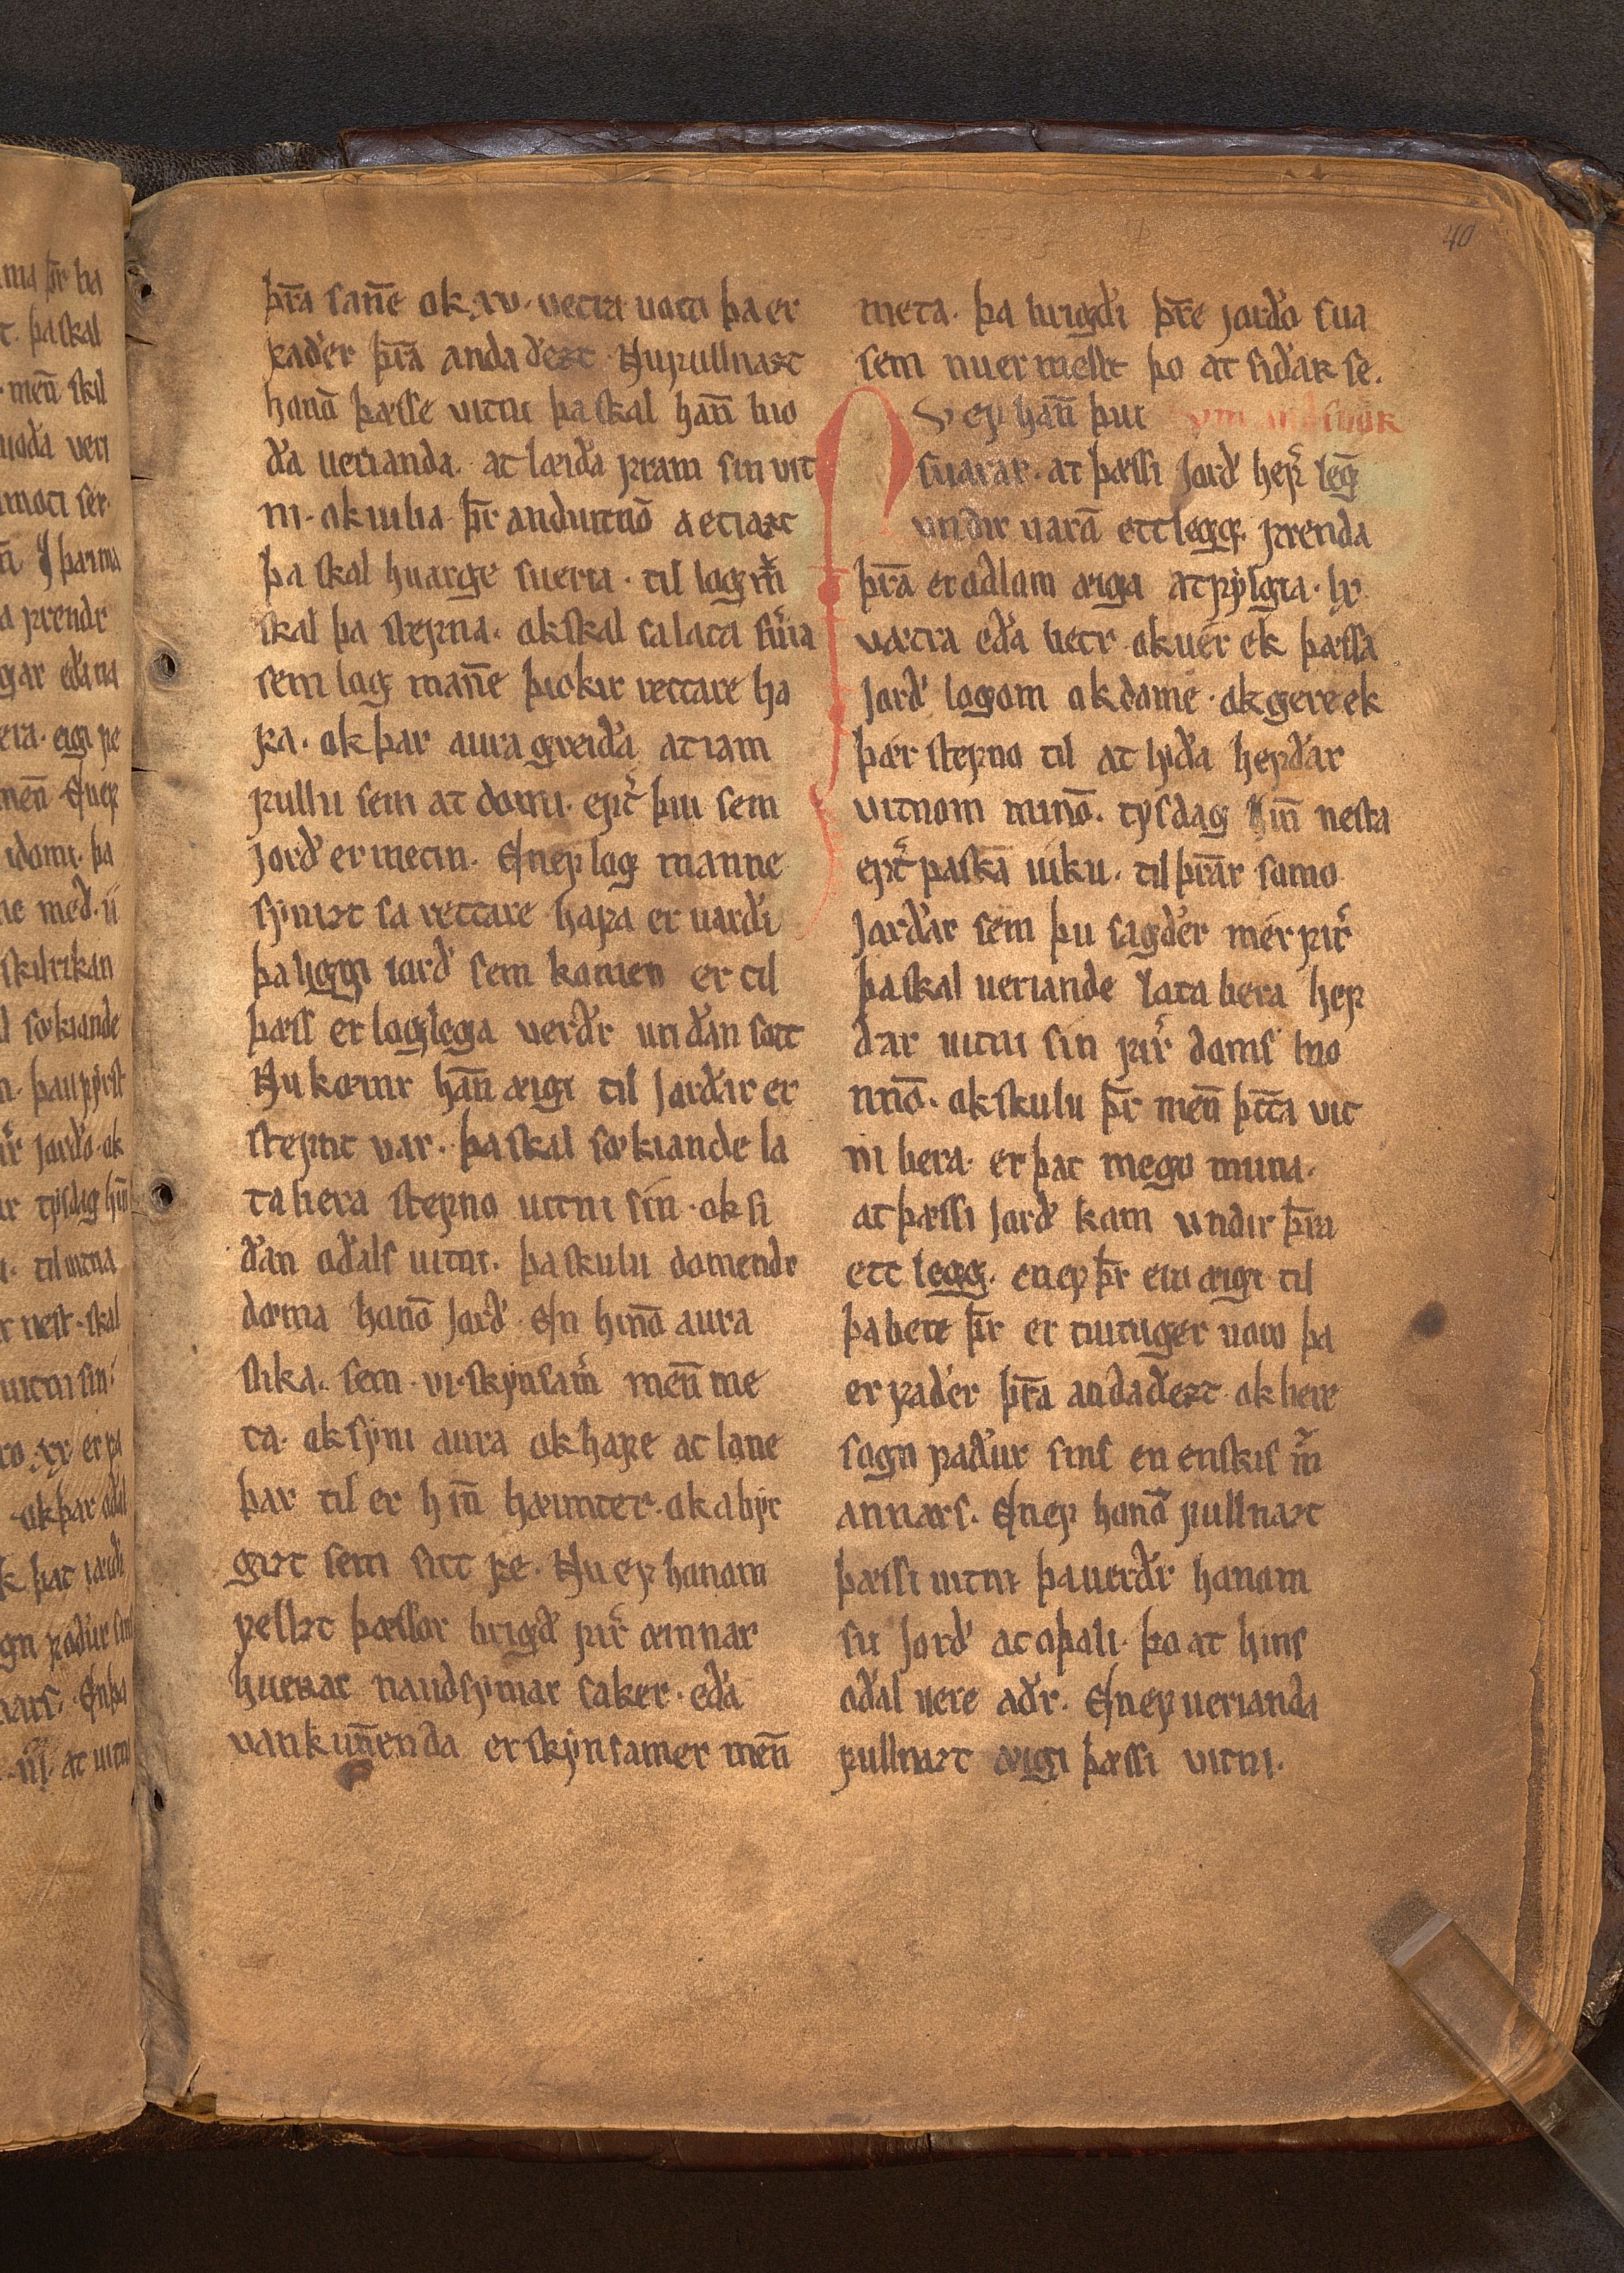 40
þr̄a sañe ok .xv. vetra varo þa er
faðer þr̄a andaðezt. Nu fullnazt
honō þæsse vitni þa skal hañ bio
ða verianda. at læiða fram sin vit
ni. ok iuba þr̄ anduitnō a etiazt
þa skal huarge sueria. til logm̄
skal þa stefna. ok skal sa lata su͛ia
sem log mañe þickir rettare ha
fa. ok þar aura greiða at iam
fullu sem at domi. eft͛ þui sem
Jorð er metin. En ef log manne
synizt sa rettare hafa er varði
þa liggi iorð sem komen er til
þæss er loglega verðr undan sott
Nu kømr hañ æigi til Jarðar er
stefnt var. þa skal sø̨kiande la
ta bera stefno uitni sin. ok si
ðan oðals uitni. þa skulu domendr
døma honō Jorð. En hinō aura
slika. sem .vi. skynsam͛ meñ me
ta. ok syni aura ok hafe at lane
þar til er hiñ hæimter. ok abyr
gizt sem sitt fe. Nu ef honom
fellzt þæssor brigð fir͛ æinnar
huerrar naudsyniar saker. eða
vankuñenda er skynsamer meñ
meta. þa brigdi þr̄e jorðo sua
sem nu er mellt þo at siðar se.
N v ef hañ þui
suarar. at þæssi Jorð hef͛ leḡ
vndir varā ett legg. frenda
þr̄a er odlom æiga at fylgia. lx
vætra eða betr. ok uer ek þæssa
Jorð logom ok dome. ok gere ek
þær stefno til at lyða hefðar
vitnom minō. tysdag hiñ nesta
eft͛ paska uiku. til þr̄ar somo
Jarðar sem þu sagðer mer fir͛
þa skal veriande lata bera hef
ðar uitni sin fir͛ doms mo
nnō. ok skulu þr̄ meñ þt̄ta vit
ni bera. er þat mego muna.
at þæssi Jorð kom vndir þr̄ra
ett legg. en ef þr̄ ero æigi til
þa bere þr̄ er tuituger uoro þa
er faðer þr̄a andaðezt. ok bere
sogn faður sins en enskis m̄
annars. En ef honō fullnazt
þæssi uitni þa uerðr honom
su Jorð at oþali. þo at hins
oðal vere aðr. En ef uerianda
fullnazt æigi þæssi vitni.